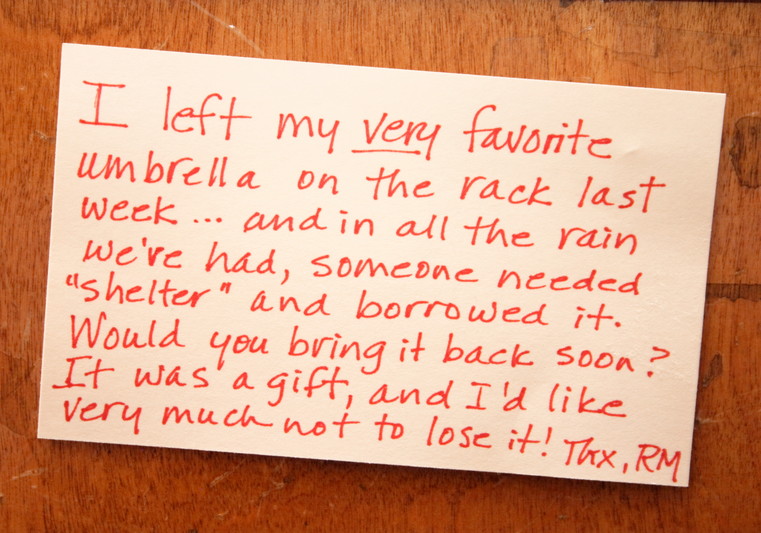 I left my very favorite
umbrella on the rack last
week... and in all the rain
we're had, someone needed
"shelter" and borrowed it.
Would you bring it back soon?
It was a gift, and I'd like
very much not to lose it! Thx, RM